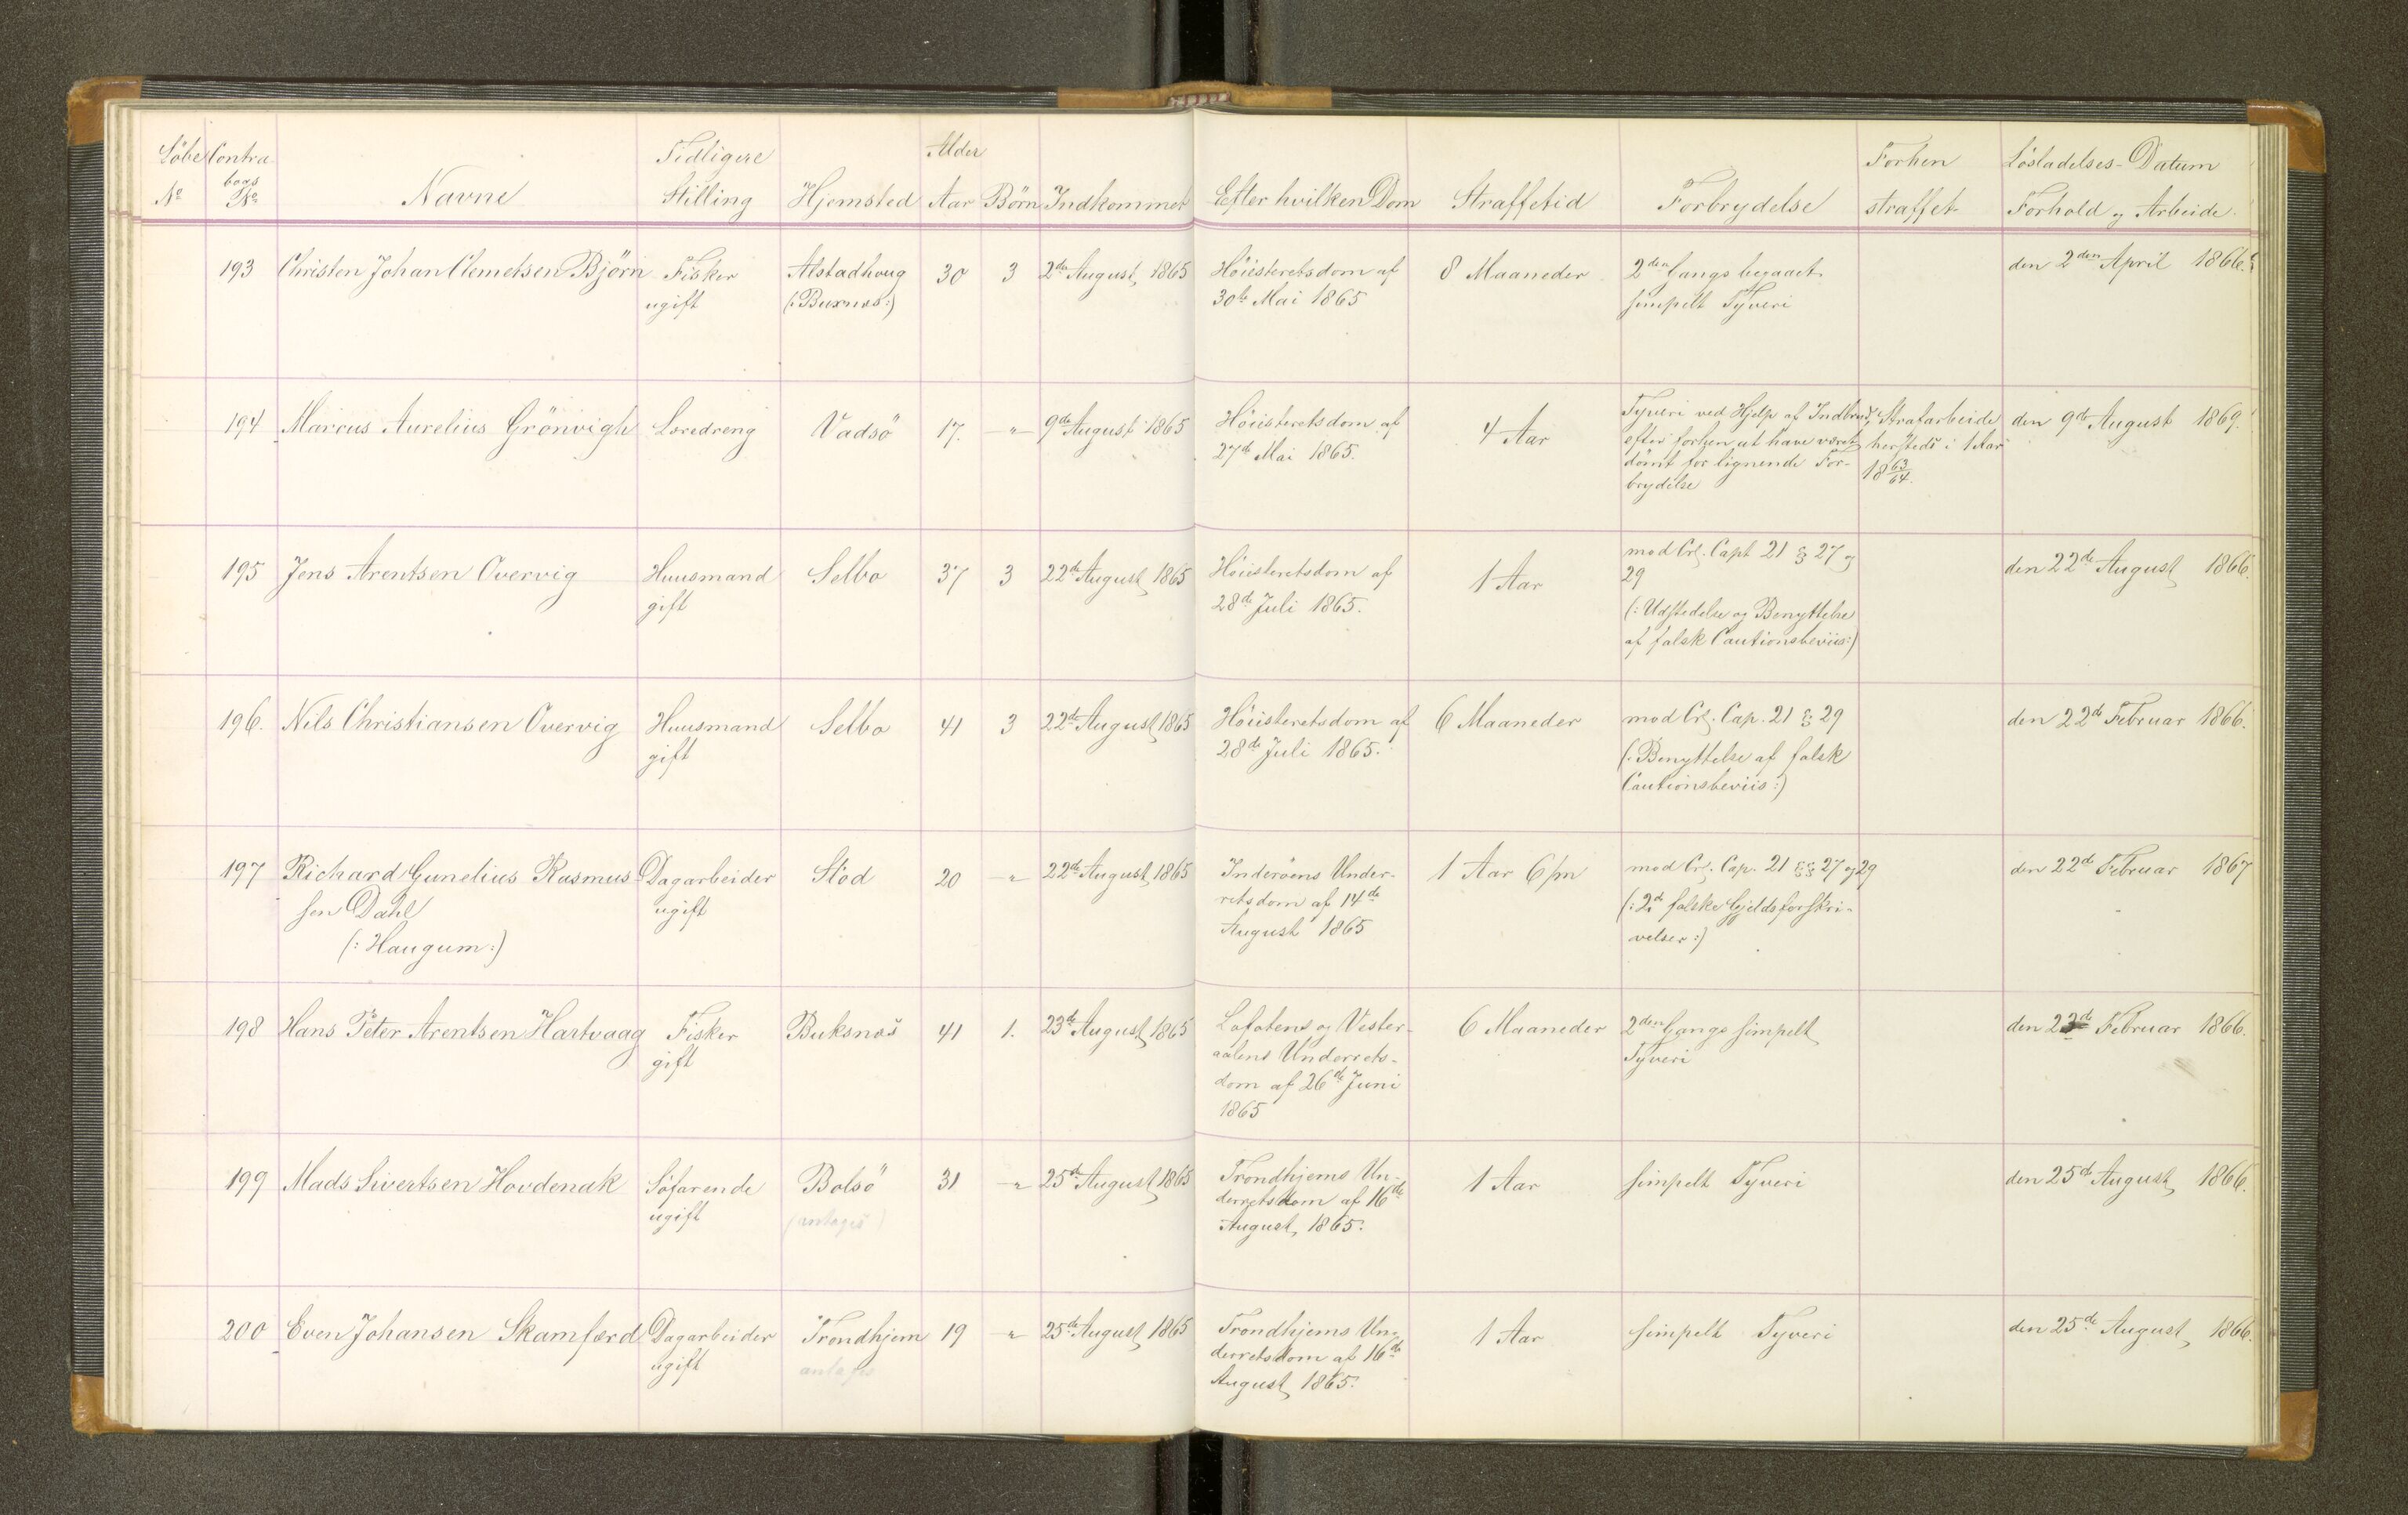 Löbe Contra Tidligere Alder Forhen Lösladelses-Datum
No bogs No Navne Stilling Hjemsted Aar Börn Indkommet Efter hvilken Dom Straffetid Forbrydelse straffet Forhold og Arbeide
193 Christen Johan Clemetsen Björn Fisker Alstadhoug 30 3 2de August 1865 Höiesteretsdom af 8 Maaneder 2den Gangs begaaet den 2den April 1866.
ugift (:Buxnæs:) 30te Mai 1865 simpelt Tyveri
194 Marcus Aurelius Grönvigh Læredreng Vadsö 17. -"- 9de August 1865 Höiesteretsdom af 4 Aar Tyveri ved Hjelp af Indbrud, Strafarbeide den 9de August 1869.
27de Mai 1865. efter forhen at have været hersteds i 1 Aar
dömt for lignende For- 18 63/64.
brydelse
195 Jens Arentsen Overvig Huusmand Selbo 37 3 22de August 1865 Höiesteretsdom af 1 Aar mod Crl. Capt 21 § 27 og den 22de August 1866.
gift 28de Juli 1865. 29
(: Udstedelse og Benyttelse
af falsk Cautionsbeviis:)
196. Nils Christiansen Overvig Huusmand Selbo 41 3 22de August 1865 Höiesteretsdom af 6 Maaneder mod Crl. Cap. 21 § 29 den 22de Februar 1866.
gift 28de Juli 1865. (: Benyttelse af falsk
Cautionsbeviis:)
197 Richard Gunelius Rasmus- Dagarbeider Stod 20 -"- 22de August 1865 Inderöens Under- 1 Aar 6/m mod Crl. Cap. 21 §§ 27 og 29 den 22d Februar 1867
sen Dahl ugift retsdom af 14de (: 2d falske Gjeldsforskri-
(: Haugum:) August 1865 velser:)
198 Hans Peter Arentsen Hartvaag Fisker Buksnæs 41 1. 23de August 1865 Lofotens og Vester- 6 Maaneder 2den Gangs simpelt den 23d Februar 1866.
gift aalens Underrets- Tyveri
dom af 26de Juni
1865
199 Mads Sivertsen Hovdenak Söfarende Bolsö 31 -"- 25de August 1865 Trondhjems Un- 1 Aar simpelt Tyveri den 25de August 1866.
ugift (antages) derretsdom af 16de
August, 1865.
200 Even Johansen Skamferd Dagarbeider Trondhjem 19 -"- 25de August 1865 Trondhjems Un- 1 Aar simpelt Tyveri den 25de August 1866.
ugift antages derretsdom af 16de
August 1865.